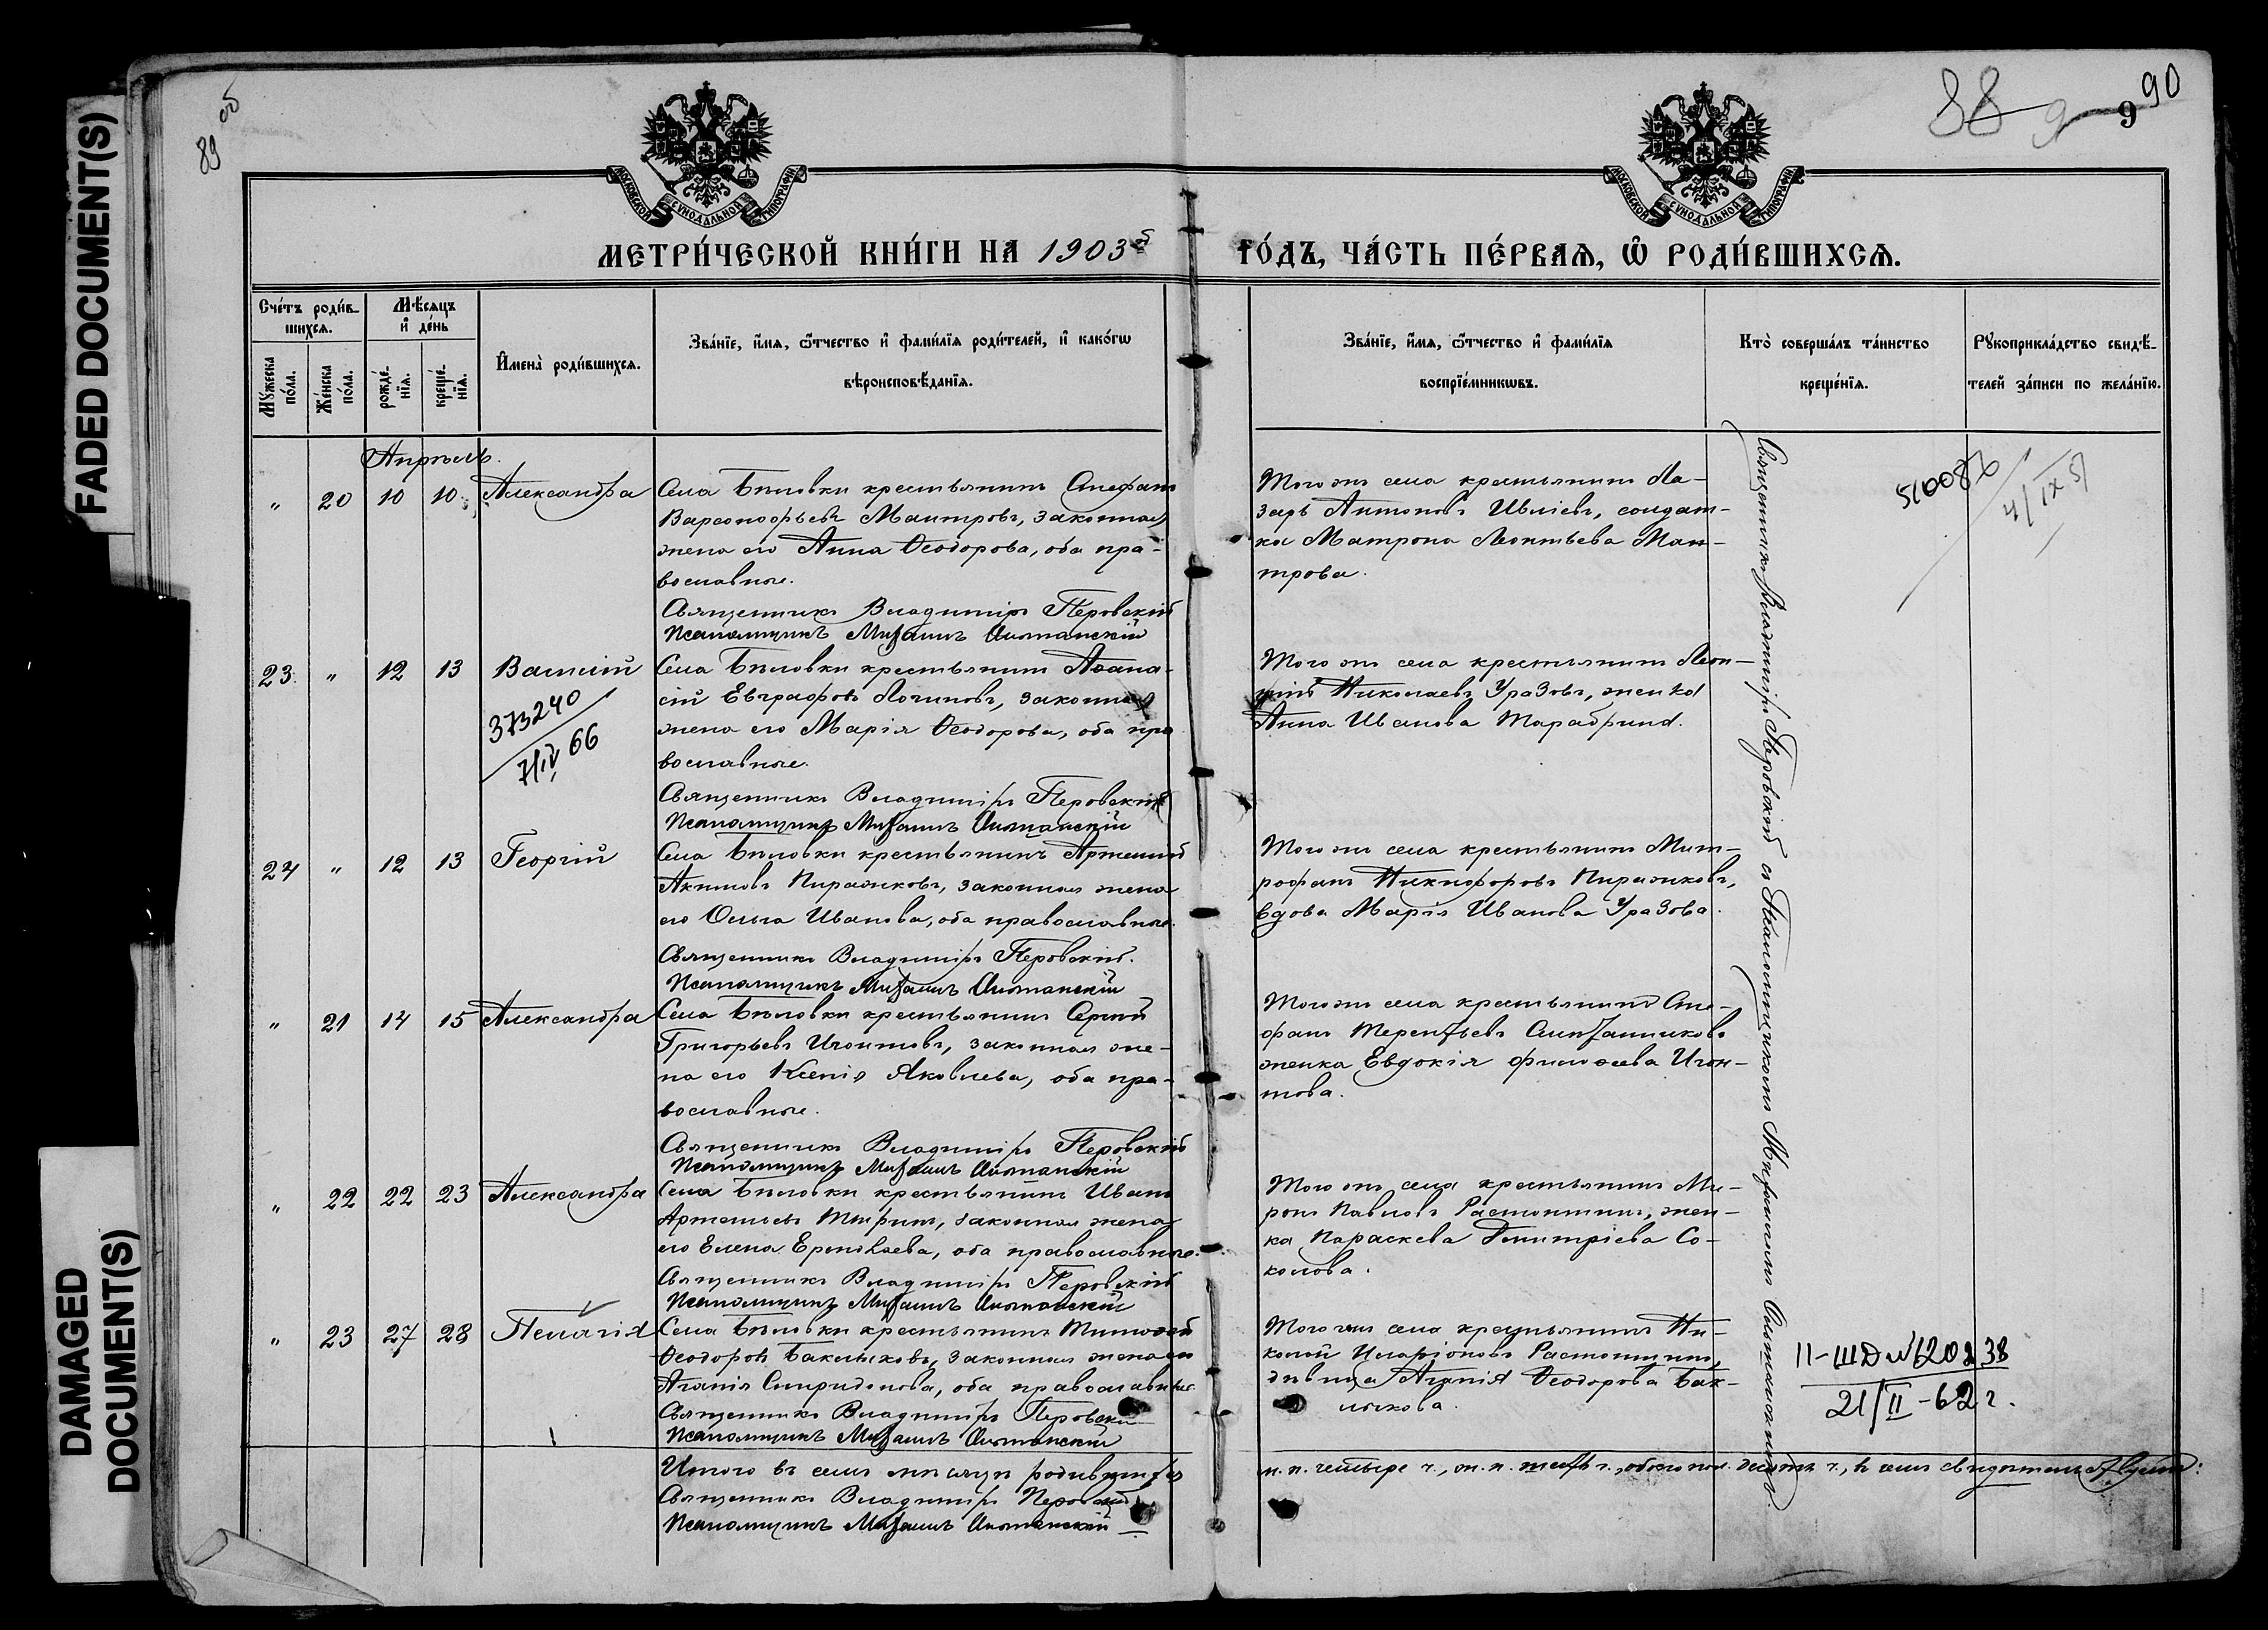 FADED DOCUMENT(S)
DAMAGED
DOCUMENT(S)
89 об
88
9
90
МОСКОВСКОЙ СѴНОДАЛЬНОЙ ТИПОГРАФІИ
МОСКОВСКОЙ СѴНОДАЛЬНОЙ ТИПОГРАФІИ
МЕТРИ́ЧЕСКОЙ КНИ́ГИ НА 1903й
ГО́ДЪ, ЧА́СТЬ ПЕ́РВАѦ, Ѡ҆ РОДИ́ВШИХСѦ.
Сче́тъ роди́в-
шихсѧ.
Мꙋ́жеска по́ла.
Же́нска по́ла.
Мѣ́сѧцъ
и҆ де́нь
рожде́-
нїѧ.
креще́-
нїѧ.
И҆мена̀ роди́вшихсѧ.
Зва́нїе, и҆́мѧ, ѻ҆́тчество и҆ фами́лїѧ роди́телей, и҆ како́гѡ
вѣроисповѣ́данїѧ.
Зва́нїе, и҆́мѧ, ѻ҆́тчество и҆ фами́лїѧ
воспрїе́мникѡвъ.
Кто̀ соверша́лъ та́инство
креще́нїѧ.
Рꙋкоприкла́дство свидѣ́-
телей за́писи по жела́нїю.
Апрѣль.
" 20 10 10 Александра
Села Бѣловки крестьянинъ Стефанъ
Варсонофьевъ Маитровъ, законная
жена его Анна Ѳеодорова, оба пра-
вославные.
Священникъ Владиміръ Перовскій
Псаломщикъ Михаилъ
Того же села крестьянинъ Ла-
зарь Антоновъ Ивліевъ, солдат-
ка Матрона Леонтьева Маи-
трова.
23. " 12 13 Василій
373240
7/IV 66
Села Бѣловки крестьянинъ Аѳана-
сій Евграфовъ Логиновъ, законная
жена его Марія Ѳеодорова, оба пра
вославные.
Священникъ Владиміръ Перовскій
Псаломщикъ Михаилъ
Того же села крестьянинъ Леон-
тій Николаевъ Уразовъ, женка
Анна Иванова Тарабрина.
24 " 12 13 Георгій
Села Бѣловки крестьянинъ Артемій
Акимовъ Пиражковъ, законная жена
его Ольга Иванова, оба православные.
Священникъ Владиміръ Перовскій.
Псаломщикъ Михаилъ
Того же села крестьянинъ Мит-
рофанъ Никифоровъ Пиражковъ,
вдова Марія Иванова Уразова.
" 21 14 15 Александра
Села Бѣловки крестьянинъ Сергій
Григорьевъ Игонтовъ, законная же-
на его Ксенія Яковлева, оба пра-
вославные.
Священникъ Владиміръ Перовскій
Псаломщикъ Михаилъ
Того же села крестьянинъ Сте-
фанъ Терентьевъ
женка Евдокія Филоѳеева Игон-
това.
" 22 22 23 Александра
Села Бѣловки крестьянинъ Иванъ
Артемьевъ законная жена
его Елена оба православные.
Священникъ Владиміръ Перовскій
Псаломщикъ Михаилъ
Того же села крестьянинъ Ми-
ронъ Павловъ Растоптинъ, жен-
ка Параскева Димитріева Со-
колова.
" 23 27 28 Пелагія
Села Бѣловки крестьянинъ Тимоѳей
Ѳеодоровъ Бакалыковъ, законная жена его
Агапія Спиридонова, оба православные.
Священникъ Владиміръ Перовскій
Псаломщикъ Михаилъ
Того же села крестьянинъ Ни-
колай Иларіоновъ Растоптинъ,
дѣвица Агапія Ѳеодорова Бак-
лыкова.
Итого въ семъ мѣсяцѣ родившихся
Священникъ Владиміръ Перовскій
Псаломщикъ Михаилъ
м. п. четыре ч., ж. п. шесть ч., обоего пол. десять ч., въ чемъ свидѣтельствуемъ:
Священникъ Владиміръ Перовскій съ Псаломщикомъ Михаиломъ
II-ШД №120238
21/II-62 г.